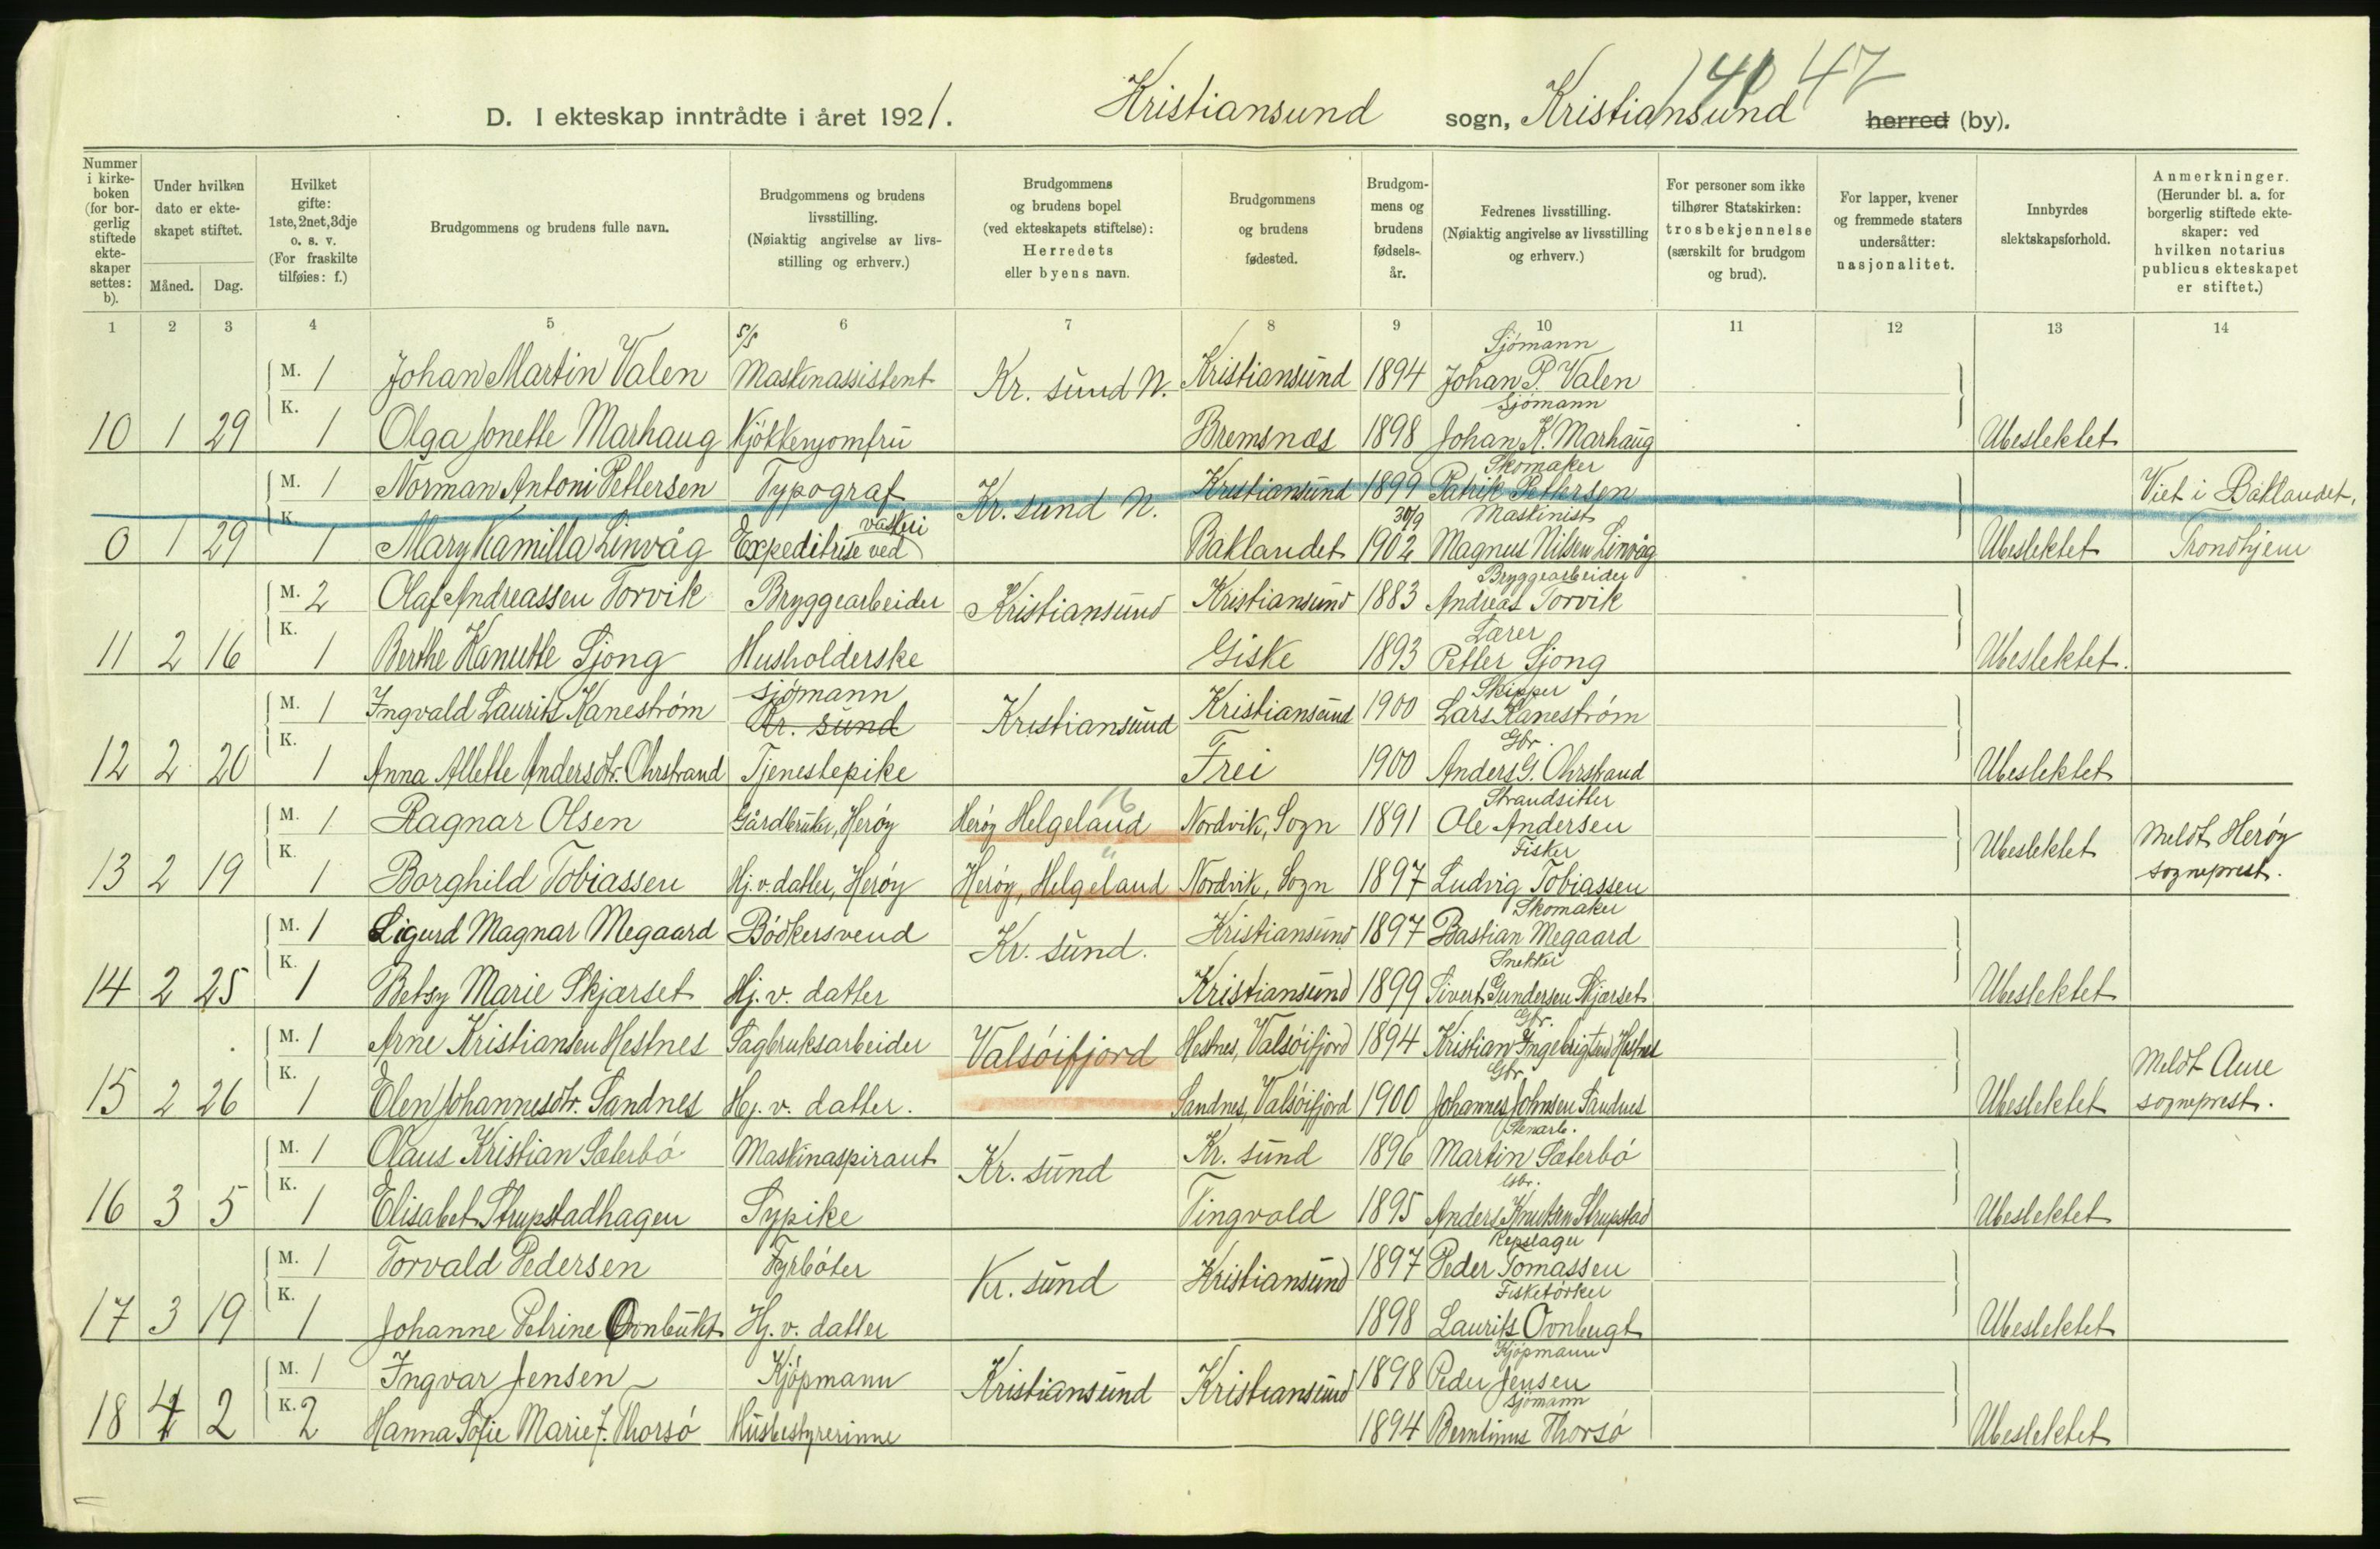 140 47
D. I ekteskap inntrådte i året 1921. Kristiansund sogn, Kristiansund herred (by).
Nummer i kirkeboken (for borgerlig stiftede ekteskaper settes: b).
Under hvilken dato er ekteskapet stiftet.
Måned. Dag.
Hvilket gifte: 1ste, 2net, 3dje o. s. v. (For fraskilte tilføies: f.)
Brudgommens og brudens fulle navn.
Brudgommens og brudens livsstilling. (Nøiaktig angivelse av livsstilling og erhverv.)
Brudgommens og brudens bopel (ved ekteskapets stiftelse): Herredets eller byens navn.
Brudgommens og brudens fødested.
Brudgommens og brudens fødselsår.
Fedrenes livsstilling. (Nøiaktig angivelse av livsstilling og erhverv.)
For personer som ikke tilhører Statskirken: trosbekjennelse (særskilt for brudgom og brud).
For lapper, kvener og fremmede staters undersåtter: nasjonalitet.
Innbyrdes slektskapsforhold.
Anmerkninger. (Herunder bl. a. for borgerlig stiftede ekteskaper: ved hvilken notarius publicus ekteskapet er stiftet.)
1 2 3 4 5 6 7 8 9 10 11 12 13 14
S/S Sjömann
M. 1 Johan Martin Valen Maskinassistent Kr. sund N. Kristiansund 1894 Johan P. Valen
Sjömann
10 1 29 K. 1 Olga Jonette Marhaug Kjökkenjomfru Bremsnes 1898 Johan K. Marhaug Ubeslektet
Skomaker
M. 1 Norman Antoni Pettersen Typograf Kr. sund N. Kristiansund 1899 Patrik Pettersen Viet i Baklandet,
vaskeri 30/9 Maskinist
0 1 29 K. 1 Mary Kamilla Linvåg Expeditrise ved Baklandet 1902 Magnus Nilsen Linvåg Ubeslektet Trondhjem
Bryggearbeider
M. 2 Olaf Andreassen Torvik Bryggearbeider Kristiansund Kristiansund 1883 Andreas Torvik
Lærer
11 2 16 K. 1 Berthe Kanutte Sjong Husholderske Giske 1893 Petter Sjong Ubeslektet.
Sjömann Skipper
M. 1 Ingvald Laurits Kaneström Kr. sund Kristiansund Kristiansund 1900 Lars Kaneström
Gbr.
12 2 20 K. 1 Anna Allette Andersdtr. Ohrstrand Tjenestepike Frei 1900 Anders G. Ohrstrand Ubeslektet
16 Strandsitter
M. 1 Ragnar Olsen Gårdbruker, Herøy Herøy Helgeland Nordvik, Sogn 1891 Ole Andersen Ubeslektet Meldt Herøy
" Fisker
13 2 19 K. 1 Borghild Tobiassen Hj. v. datter, Herøy Herøy, Helgeland Nordvik, Sogn 1897 Ludvig Tobiassen sogneprest.
Skomaker
M. 1 Sigurd Magnar Megaard Bödkersvend Kr. sund. Kristiansund 1897 Bastian Megaard
Snekker
14 2 25 K. 1 Betsy Marie Skjærset Hj. v. datter Kristiansund 1899 Sivert Gundersen Skjærset Ubeslektet
Gbr.
M. 1 Arne Kristiansen Hestnes Sagbruksarbeider Valsöifjord Hestnes, Valsöifjord 1894 Kristian Ingebrigtsen Hestnes Meldt Aure
Gbr.
15 2 26 K. 1 Elen Johannesdtr. Sandnes Hj. v. datter. Sandnes, Valsöifjord 1900 Johannes Johnsen Sandnes Ubeslektet sogneprest.
Stenarb.
M. 1 Olaus Kristian Sæterbö Maskinaspirant Kr. sund Kr. sund 1896 Martin Sæterbö
Gbr.
16 3 5 K. 1 Elisabet Strupstadhagen Sypike Tingvold 1895 Anders Knutsen Strupstad Ubeslektet
Repslager
M. 1 Torvald Pedersen Fyrböter Kr. sund Kristiansund 1897 Peder Tomassen
Fisketörker
17 3 19 K. 1 Johanne Petrine Ovnbukt Hj. v. datter 1898 Laurits Ovnbugt Ubeslektet
Kjöpmann
M. 1 Ingvar Jensen Kjöpmann Kristiansund Kristiansund 1898 Peder Jensen
Sjömann
18 4 2 K. 2 Hanna Sofie Marie F. Thorsö Husbestyrerinne 1894 Berntinus Thorsö Ubeslektet